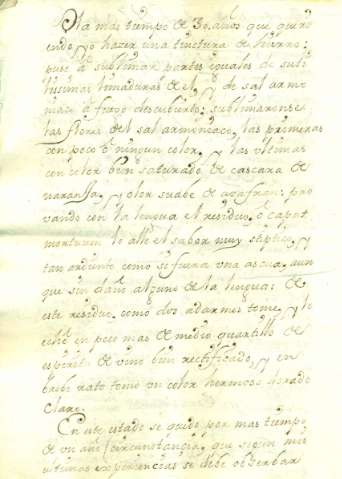 Ha mas tiempo de 30. años que query
endo yo hazer una tinctura de hierro:
puse à sublimar partes iguales de subti
lissimas limaduras de el, y de sal armo
niaco à fuego descubierto: sublimaronse
las flores del sal armoniaco, las primeras
con poco ò ningun color, y las ultimas
con color bien saturado de cascara de
naranja, y olor suabe de azafran: pro
vando con la lengua el residuo, ò caput
mortuum le allè el sabor muy stiptico,
tan ardiente como si fuera una ascua, aun
que sin daño alguno de la lengua: de
este residuo como dos adarmes tomè, y lo
echè en poco mas de medio quartillo de
espirit. de vino bien rectificado, y en
breve rato tomò un color hermoso dorado
claro.
En este estado se quedò por mas tiempo
de un año (circunstancia, que segun mis
ultimas experiencias se debe observar